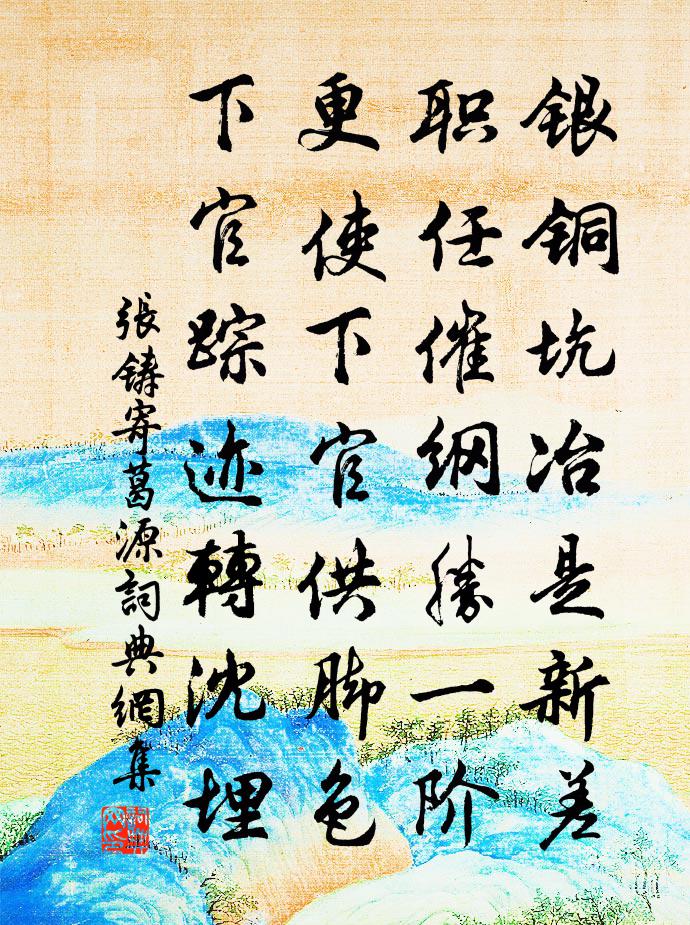 银铜坑冶是新差
职任催纲勝一阶
更使下官供脚色
下官踪迹轉沈埋
張铸寄葛源詞典網集